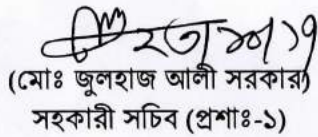 (মোঃ জুলহাজ আলী সরকার)
সহকারী সচিব (প্রশাঃ-১)